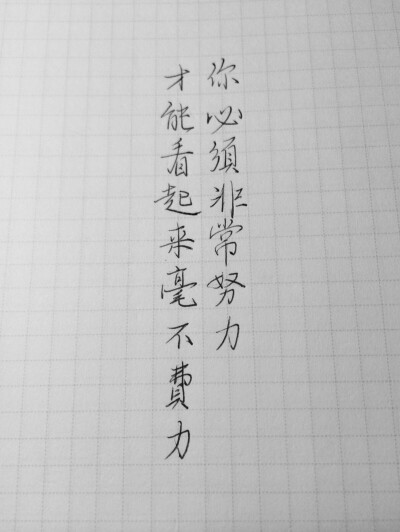 你必須非常努力
才能看起来毫不費力